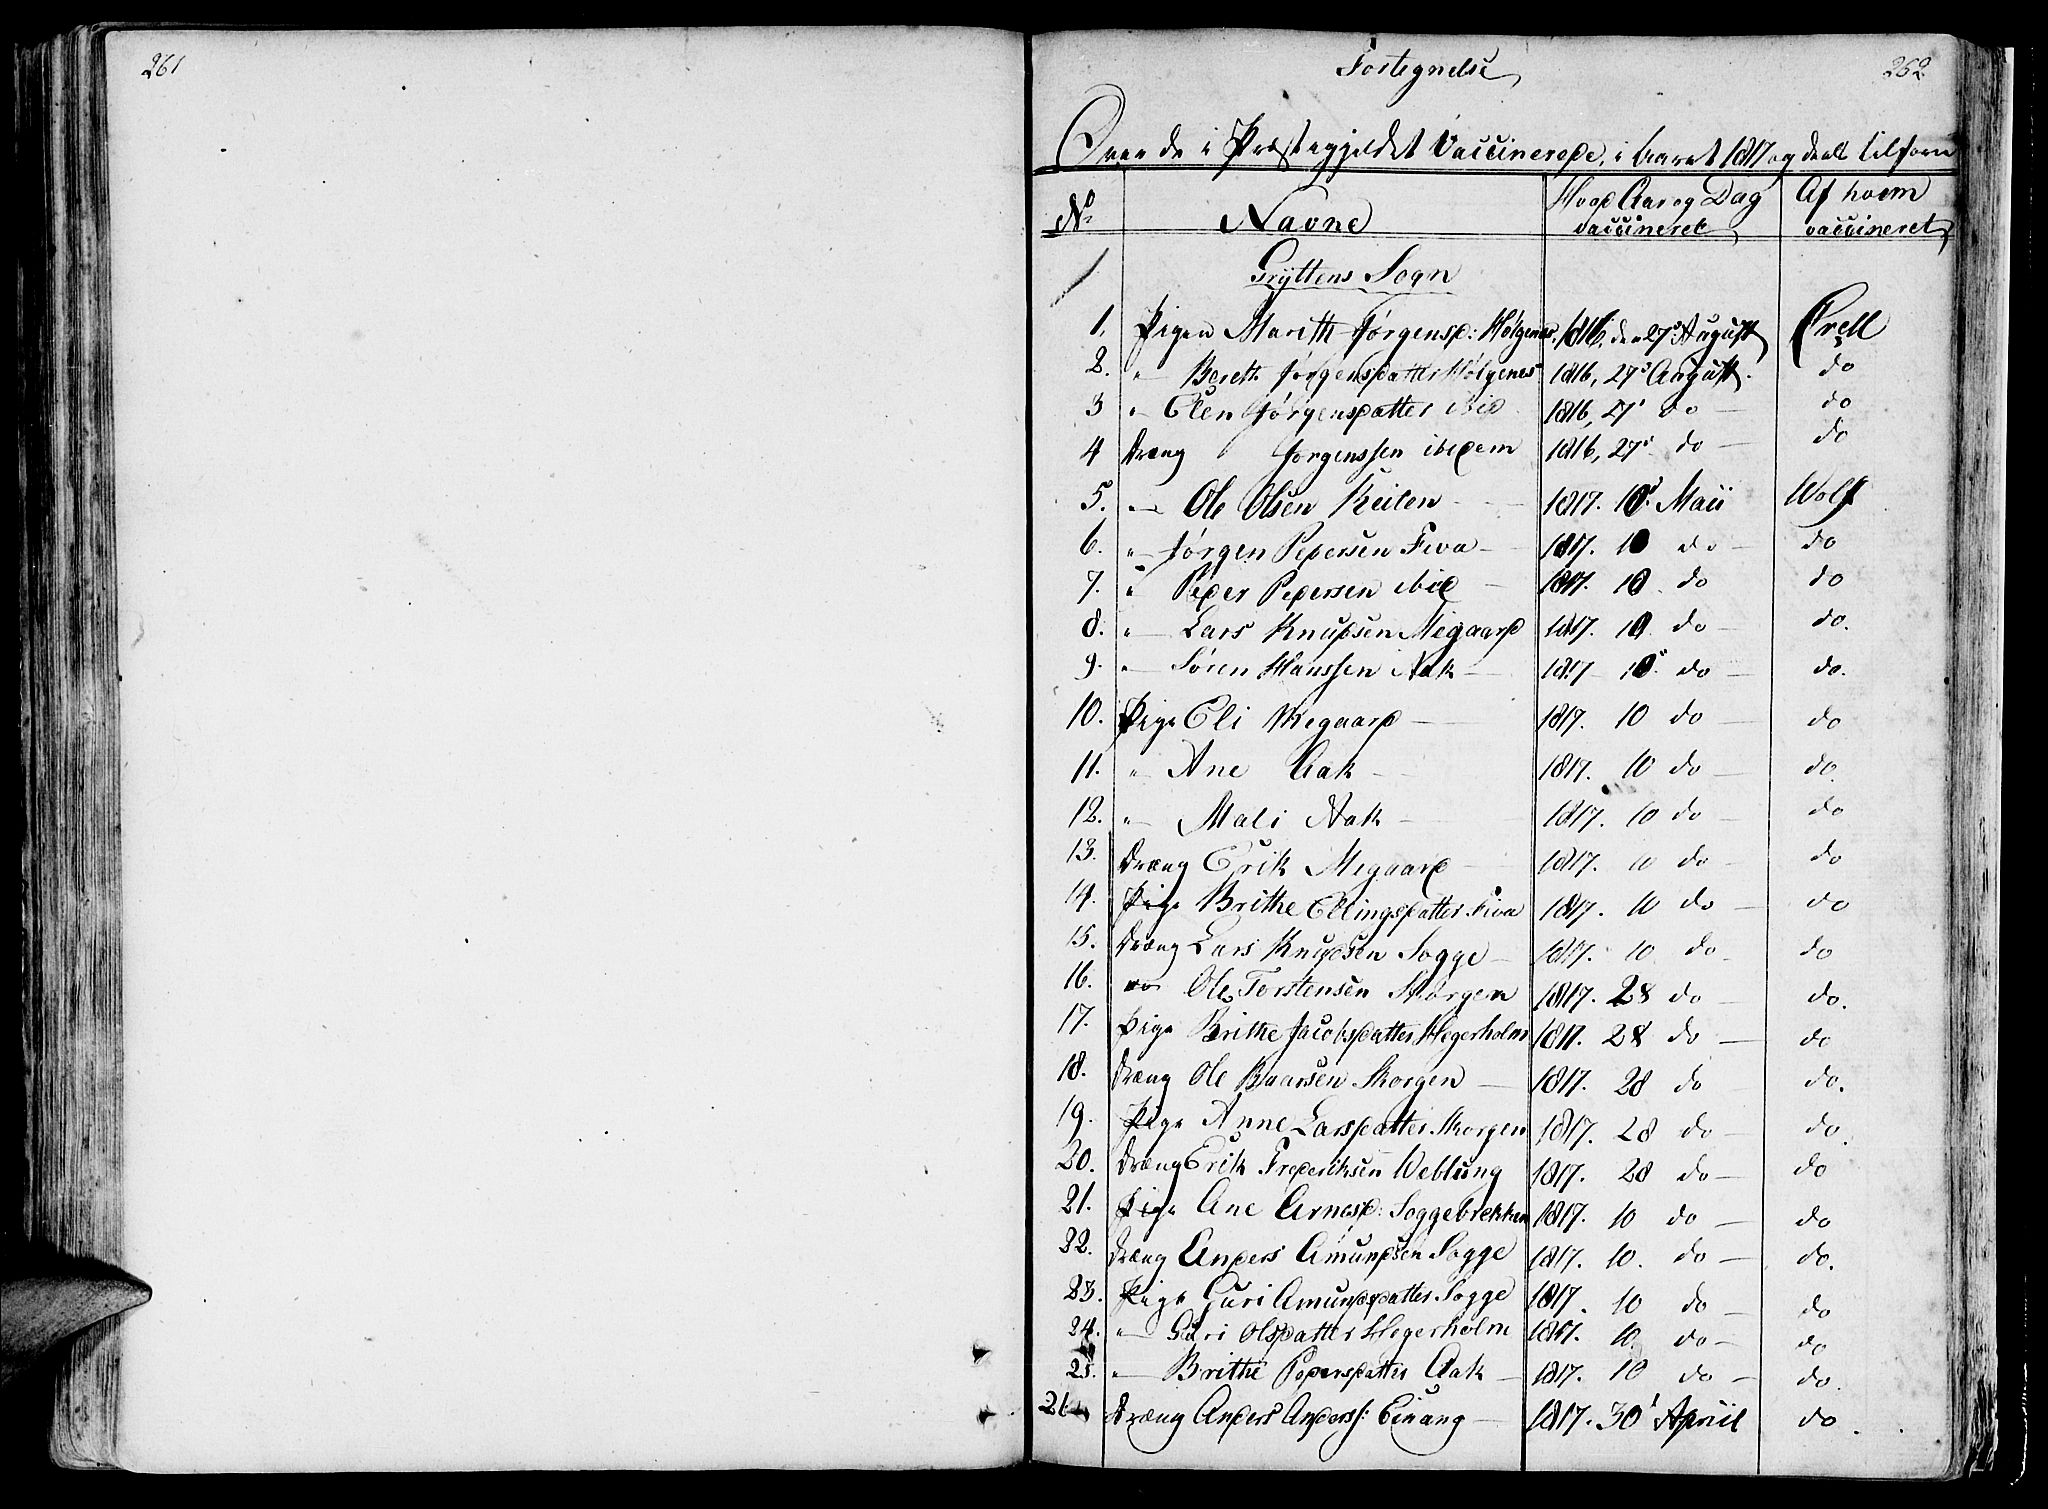 261
262
Fortegnelse
Over de i Præstegjeldet Vaccinerede, i Aaret 1817 og deels tilforn
No Navne Hvad Aar og Dag vaccineret Af hvem vaccineret
Gryttens Sogn
1. Pigen Marith Jørgensd: Hølgenes 1816, den 27de August Crell
2. " Bereth Jørgensdatter Hølgenes 1816, 27de August. do
3 " Elen Jørgensdatter ibid 1816, 27de do do
4 Dræng Jørgenssen ibidem 1816, 27de do do
5. — Ole Olsen 1817. 10de Maii Wolf
6. " Jørgen Pedersen Fiva 1817. 10 do do
7. " Peder Pedersen ibid 1817. 10 do do
8. " Lars Knudsen Megaard 1817. 10 do do.
9. " Søren Hanssen Aak 1817 10de do do.
10. Pige Eli Megaard 1817. 10 do do
11. " Ane Aak 1817. 10 do do
12. " Mali Aak 1817. 10 do do
13. Dræng Erik Megaard 1817. 10 do do
14. Pige Brithe Ellingsdatter Fiva 1817. 10 do do
15. Dræng Lars Knudsen Sogge 1817. 10 do do
16. Ole Torstensen Skorgen 1817. 28 do do.
17. Pige Brithe Jacobsdatter Hegerholm 1817. 28 do do
18. Dræng Ole Baarsen Skorgen 1817. 28 do do.
19. Pige Anne Larsdatter Skorgen 1817. 28 do do.
20. Dræng Erik Frederiksen Weblung 1817. 28 do do
21. Pige Ane Arnesd: Soggebrekken 1817. 10 do do
22. Dræng Anders Amundsen Sogge 1817. 10. do do.
23. Pige Guri Amundsdatter Sogge 1817. 10 do do
24. " Guri Olsdatter Hegerholm 1817. 10. do do
25. " Brithe Pedersdatter Aak 1817. 10 do do.
26 Dræng Anders Anderss: Einang 1817. 30de Apriil do.